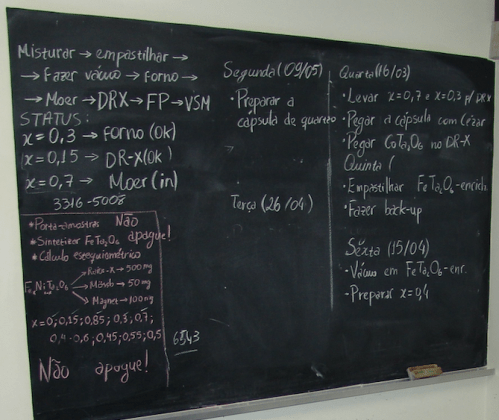 Misturar → empastilhar →
→ Fazer vácuo → forno →
→ Moer → DRX → FP → VSM
STATUS:
x = 0,3 → forno (ok)
x = 0,15 → DR-X (ok)
x = 0,7 → Moer (in)
3316-5008
• Porta-amostras Não
• Sintetizar FeTa2O6 apague!
• Cálculo estequiométrico
Raio-X → 500 mg
Mössb → 50 mg
Magnet → 100 mg
x = 0; 0,15; 0,85; 0,3; 0,7;
0,4 - 0,6; 0,45; 0,55; 0,5
Não apague!
Segunda (09/05)
• Preparar a
cápsula de quartzo
Terça (26/04)
Quarta (16/03)
• Levar x = 0,7 e x = 0,3 p/ DRX
• Pegar a cápsula com
• Pegar CoTa2O6 no DR-X
Quinta (
• Empastilhar FeTa2O6-
• Fazer back-up
Sexta (15/04)
• Vácuo em FeTa2O6-enr.
• Preparar x = 0,4